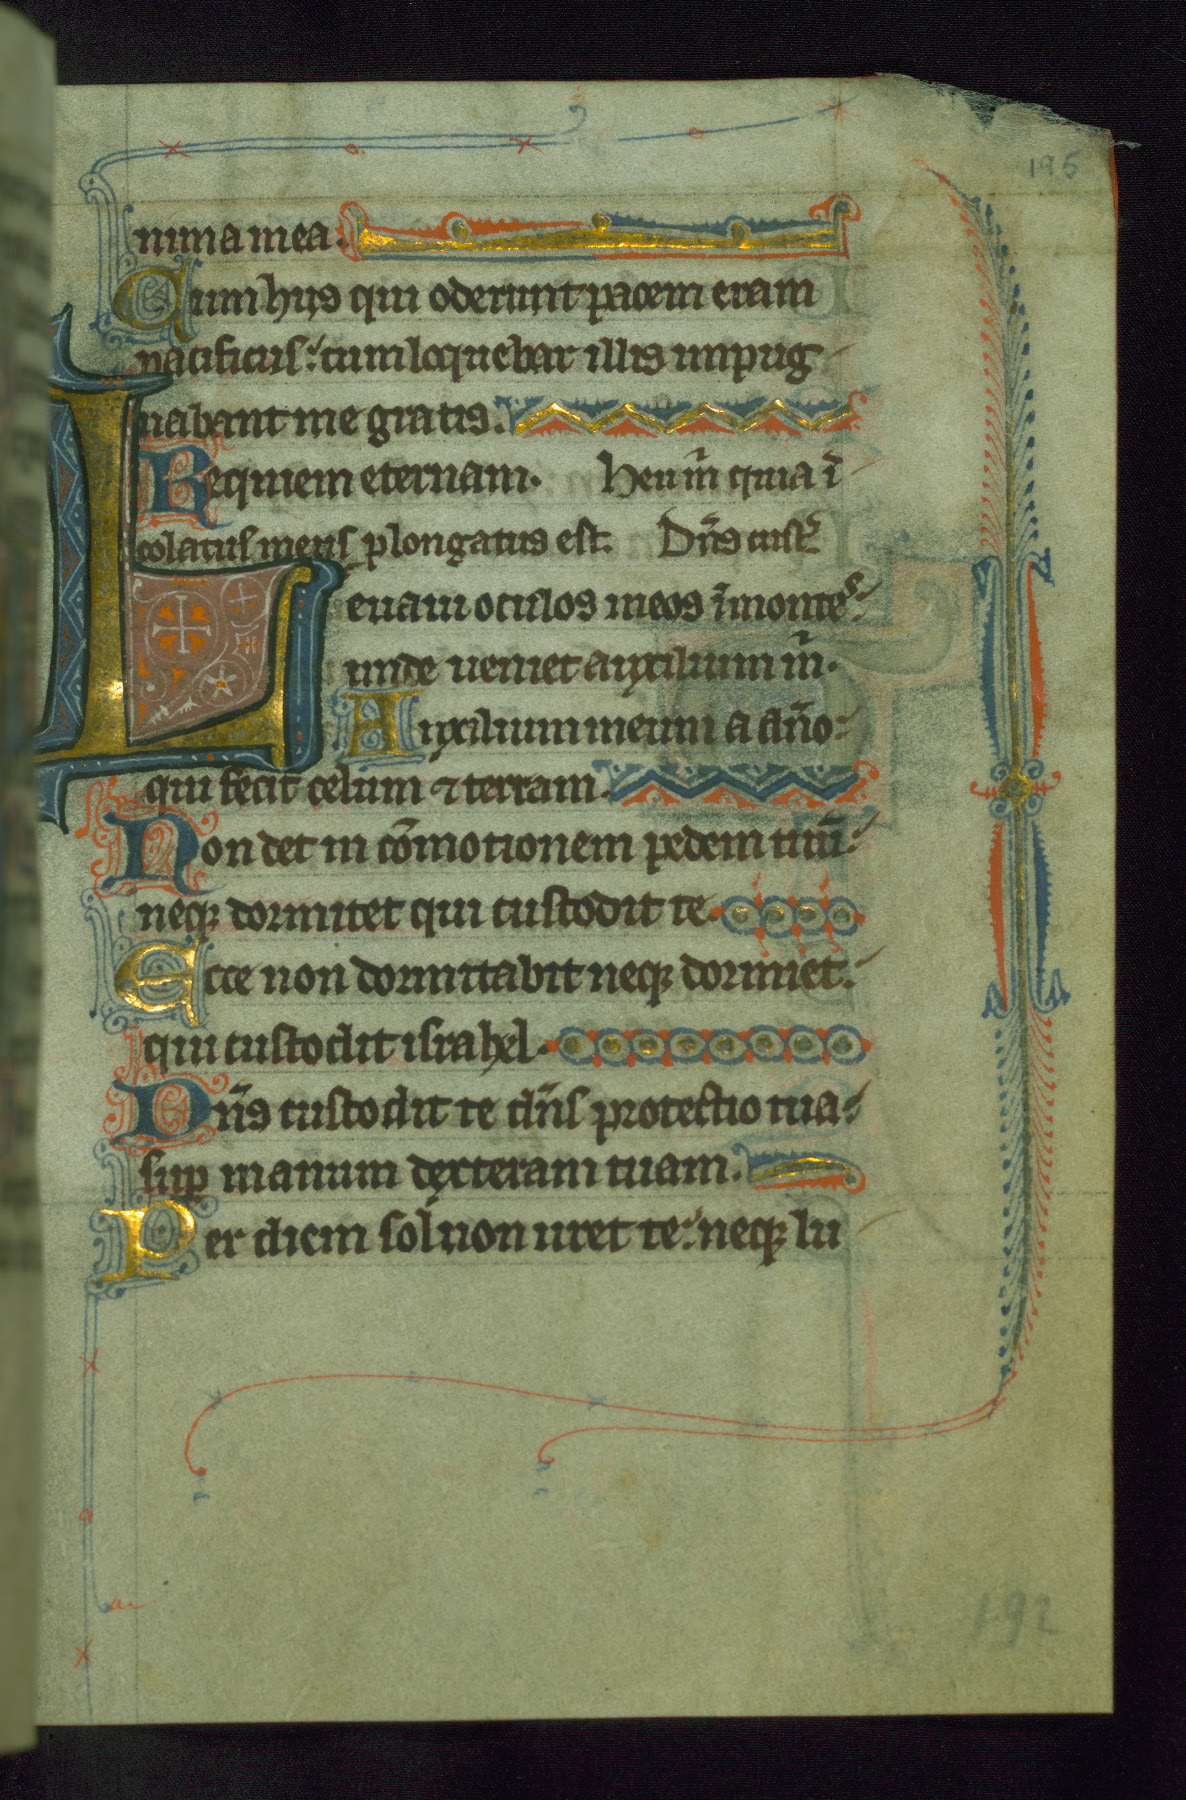 195
nima mea.
Cum hijs qui oderunt pacem eram
pacificus: cum loquebar illis inpug
nabant me gratis.
Requiem eternam. Heu m̄ quia ī
colatus meus plongatus est. Dn̄s cust̄
Leuaui oculos meos ī montes:
unde ueniet auxilium m̄.
Auxilium meum a dn̄o:
qui fecit celum ⁊ terram.
Non det in cōmotionem pedem tuū:
neqꝫ dormitet qui custodit te.
Ecce non dormitabit neqꝫ dormiet:
qui custodit israhel.
Dn̄s custodit te dn̄s protectio tua:
sup manum dexteram tuam.
Per diem sol non uret te: neqꝫ lu
192